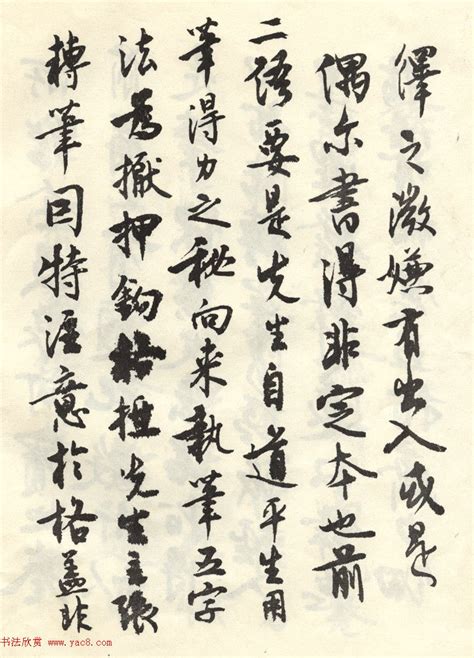 繹之微嫌有出入或是
偶尔書得非定本也前
二語要是先生自道平生用
筆得力之秘向来執筆五字
法為擫押鈎格抵先生主張
轉筆因特注意於格蓋非
书法欣赏 www.yac8.com